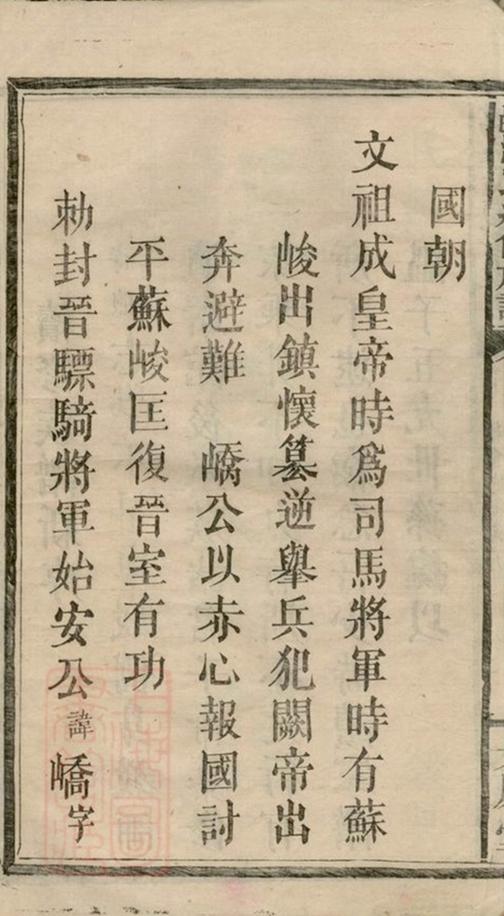 國朝
文祖成皇帝時爲司馬將軍時有蘇
峻出鎮懷篡逆舉兵犯闕帝出
奔避難　嶠公以赤心報國討
平蘇峻匡復晉室有功
勅封晉驃騎將軍始安公諱嶠字